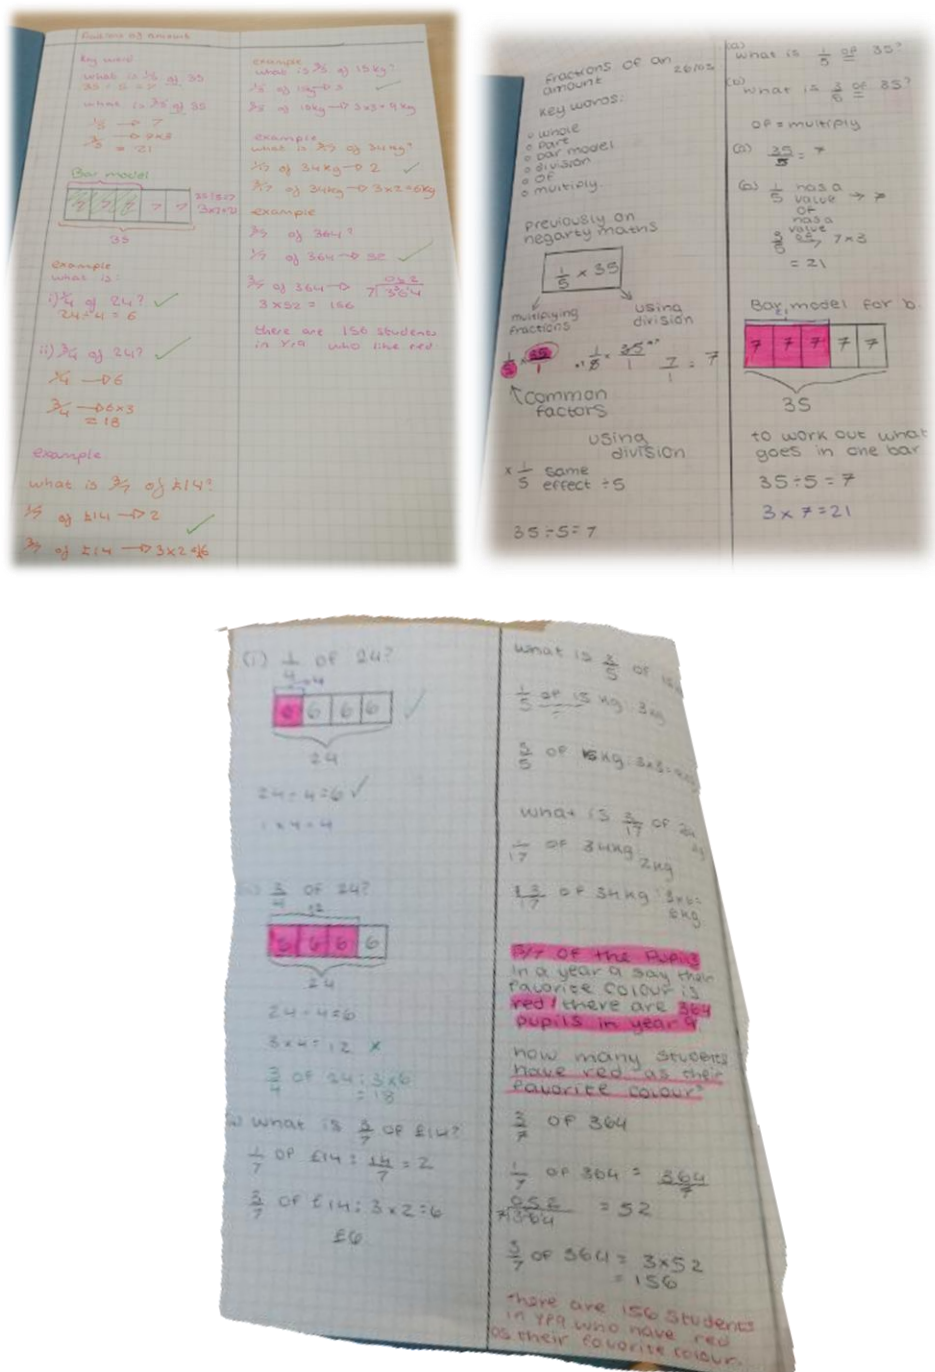 fractions of amount
key word
what is 1/5 of 35
35 ÷ 5 = 7
what is 3/5 of 35
1/5 → 7
3/5 → 7×3
= 21
Bar model
7 7 7 7 7
35
example
what is:
i) 1/4 of 24? ✓
24 ÷ 4 = 6
ii) 3/4 of 24? ✓
1/4 → 6
3/4 → 6×3
= 18
example
what is 3/7 of £14?
1/7 of £14 → 2 ✓
3/7 of £14 → 3×2=£6
example
what is 3/5 of 15kg?
1/5 of 15kg → 3 ✓
3/5 of 15kg → 3×3=9kg
example
what is 3/17 of 34kg?
1/17 of 34kg → 2 ✓
3/17 of 34kg → 3×2=6kg
example
3/7 of 364?
1/7 of 364 → 52 ✓
3/7 of 364 →
052
7 364
3×52 = 156
there are 156 students
in yr9 who like red
fractions of an
amount
26/03
key words:
whole
part
bar model
division
of
multiply.
previously on
negarty maths
1/5 × 35
multiplying
fractions
using
division
1/5 × 35/1
1/5 × 35/1
7/1 = 7
common
factors
using
division
× 1/5 same
effect ÷5
35÷5=7
(a)
what is 1/5 of 35?
(b)
what is 3/5 of 35?
of = multiply
(a) 35/5 = 7
(b) 1/5 has a
value → 7
of
3/5 has a
value
of → 7×3
= 21
Bar model for b.
7 7 7 7 7
35
to work out what
goes in one bar
35÷5=7
3×7=21
(i) 1/4 of 24?
6 6 6 6 ✓
24
24÷4=6 ✓
1×4=4
3/4 of 24?
12
6 6 6
24
24÷4=6
3×4=12 ×
3/4 of 24: 3×6
= 18
what is 3/7 of £14?
1/7 of £14 = 14/7 = 2
3/7 of £14: 3×2=6
£6
what is 3/5 of
1/5 of 15 kg 3kg
3/5 of 15kg: 3×3=
what is 3/17 of
1/17 of 34kg 2kg
3/17 of 34kg
6kg
3/7 of the Pupils
in a year 9 say their
favorite colour is
red / there are 364
pupils in year 9
how many students
have red as their
favorite colour?
3/7 of 364
1/7 of 364 = 364/7
052
7 364 = 52
3/7 of 364 = 3×52
= 156
There are 156 students
in yr9 who have red
as their favorite colour.